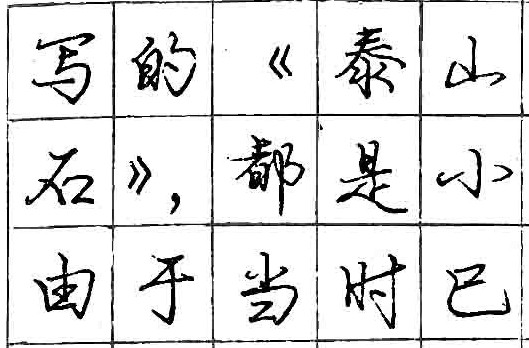 写的《泰山
石》，都是小
由于当时已